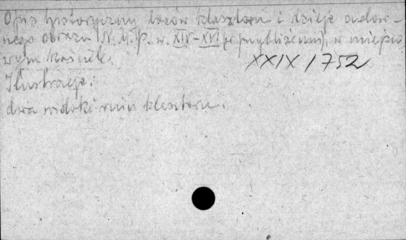 Opis historyczny losów klasztoru i dzieje cudow-
nego obrazu N.M.P. w. XIV-XVI (w przybliżeniu), w miejsco
wym kościele.
XXIX/752
Ilustracje:
dwa widoki ruin klasztoru.